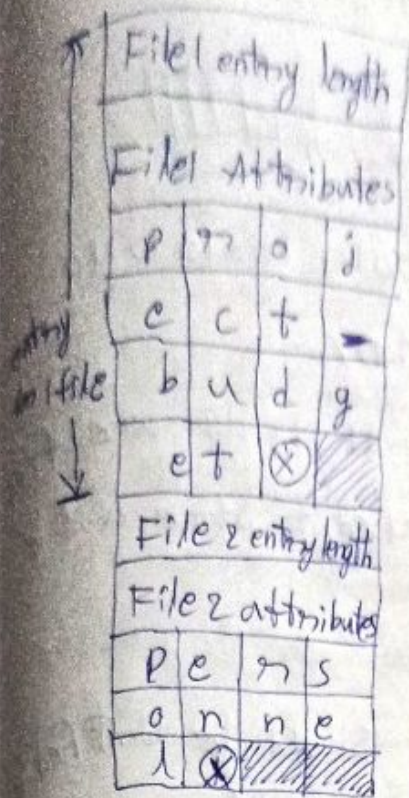 File1 entry length
File1 Attributes
p r o j
e c t -
entry
b u d g
file
e t ⊗
File 2 entry length
File 2 attributes
p e r s
o n n e
l ⊗